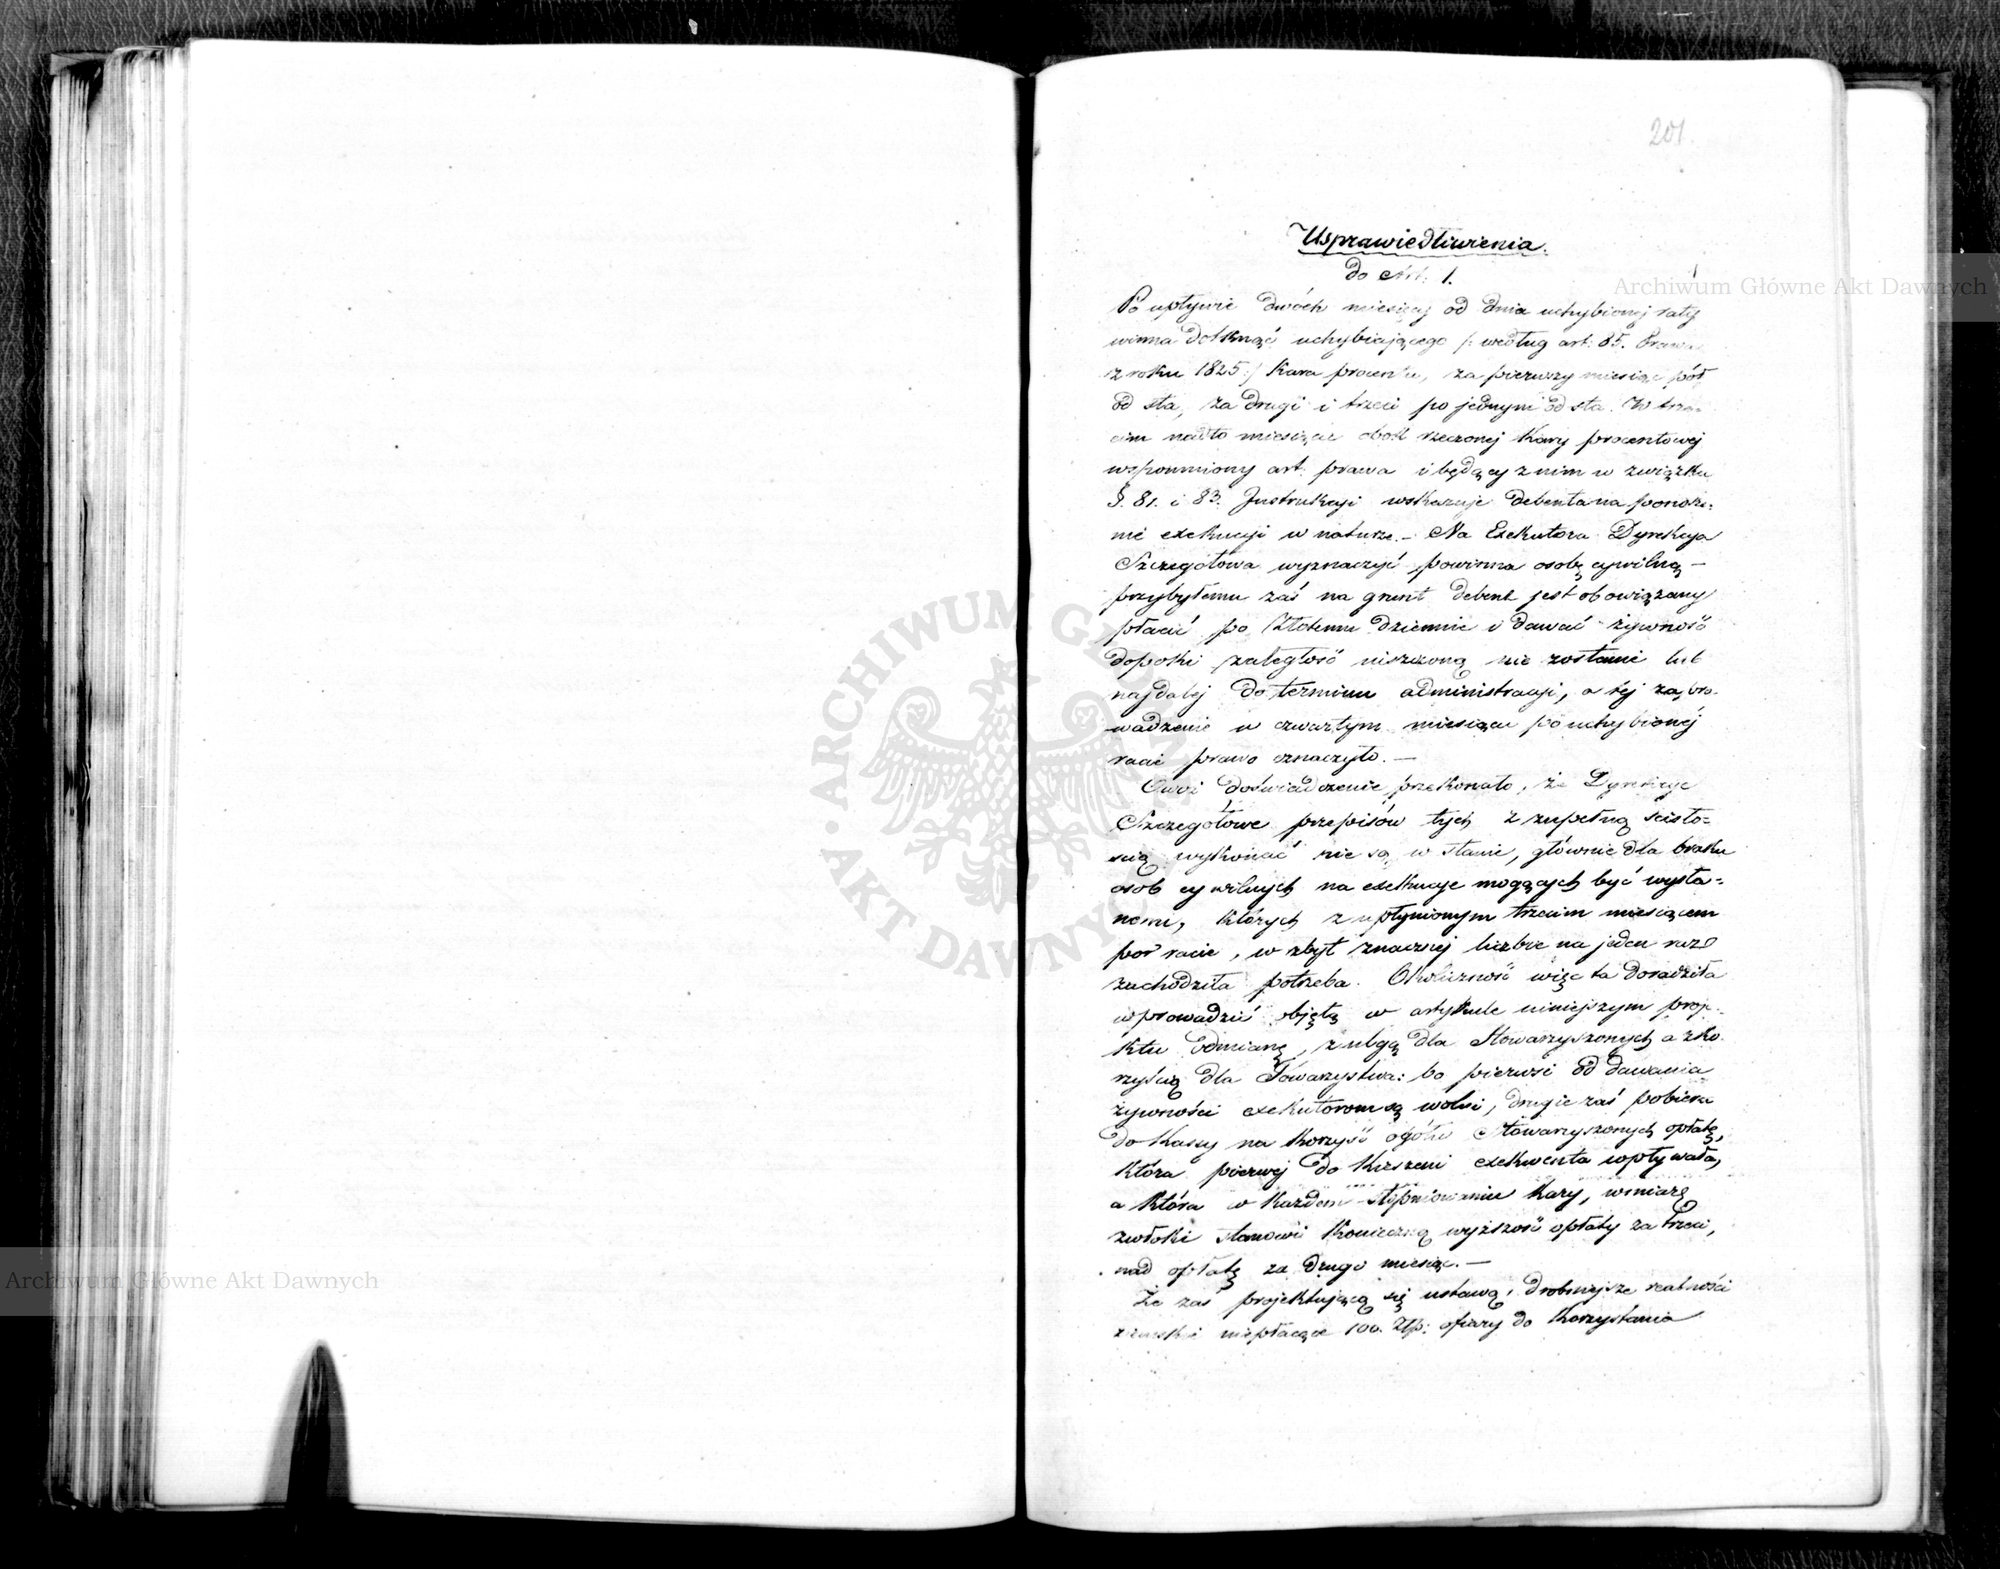 201.
Usprawiedliwienia.
do Art. 1.
Po upływie dwóch miesięcy od dnia uchybionej raty
winna dotknąć uchybiającego /: według art: 85. Prawa
z roku 1825 :/ Kara procentu, za pierwszy miesiąc pół
od sta, za drugi i trzeci po jednym od sta. W trze-
cim nadto miesiącu obok rzeczonej Kary procentowej
wspomniony art. prawa i będący z nim w związku
§. 81. i 83. Instrukcyi wskazuje debenta na ponosze-
nie exekucyi w naturze. – Na Exekutora Dyrekcya
Szczegółowa wyznaczyć powinna osobę cywilną –
przybyłemu zaś na grunt debent jest obowiązany
płacić po Złotemu dziennie i dawać żywność
dopóki zaległość uiszczoną nie zostanie lub
najdalej do terminu administracyi, a tej zapro-
wadzenie w czwartym miesiącu po uchybionej
racie prawo oznaczyło. –
Owoż doświadczenie przekonało, że Dyrekcye
Szczegółowe przepisów tych z zupełną ścisło=
ścią wykonać nie są w stanie, głównie dla braku
osób cywilnych na exekucye mogących być wysła=
nemi, których z upłynionym trzecim miesiącem
po racie, w zbyt znacznej liczbie na jeden raz
zachodziła potrzeba. Okoliczność więc ta doradziła
wprowadzić objętą w artykule niniejszym proje-
ktu odmianę, z ulgą dla Stowarzyszonych a zko-
rzyścią dla Towarzystwa: bo pierwsi od dawania
żywności exekutorom są wolni, drugie zaś pobiera
do Kassy na korzyść ogółu Stowarzyszonych opłatę,
która pierwej do Kieszeni exekwenta wpływała,
a która w każdem stopniowaniu kary, w miarę
zwłoki stanowi konieczną wyższość opłaty za trzeci,
nad opłatę za drugi miesiąc. –
Że zaś projektującą się ustawą, drobniejsze realności
ziemskie niepłacące 100. Złp: ofiary do Korzystania
Archiwum Główne Akt Dawnych
Archiwum Główne Akt Dawnych
ARCHIWUM GŁÓWNE AKT DAWNYCH